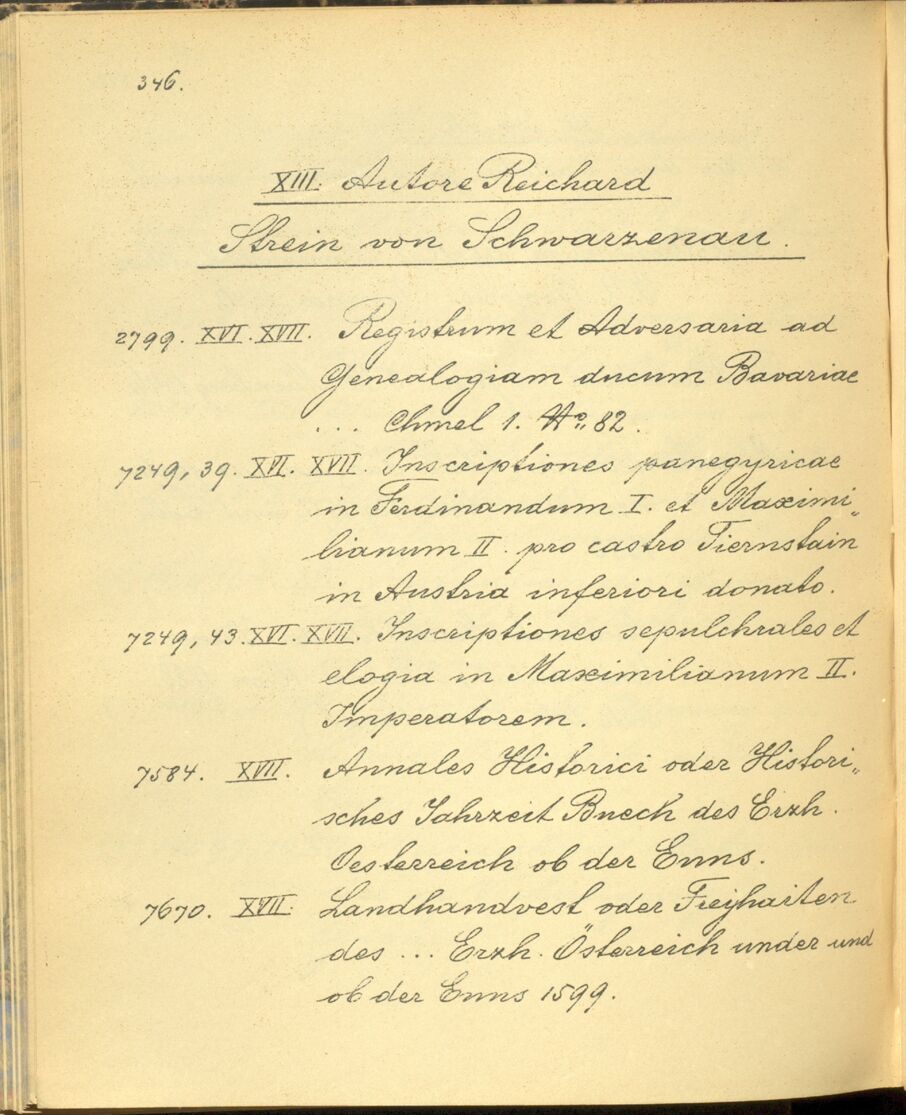 346.
XIII. Autore Reichard
Strein von Schwarzenau.
2799. XVI. XVII. Registrum et Adversaria ad
Genealogiam ducum Bavariae
... Chmel 1. No. 82.
7249, 39. XVI. XVII. Inscriptiones panegyricae
in Ferdinandum I. et Maximi„
lianum II. pro castro Tiernstain
in Austria inferiori donato.
7249, 43. XVI. XVII. Inscriptiones sepulchrales et
elogia in Maximilianum II.
Imperatorem.
7584. XVII. Annales Historici oder Histori„
sches Jahrzeit Buech des Erzh.
Oesterreich ob der Enns.
7670. XVII. Landhandvest oder Freyhaiten
des ... Erzh. Österreich under und
ob der Enns 1599.